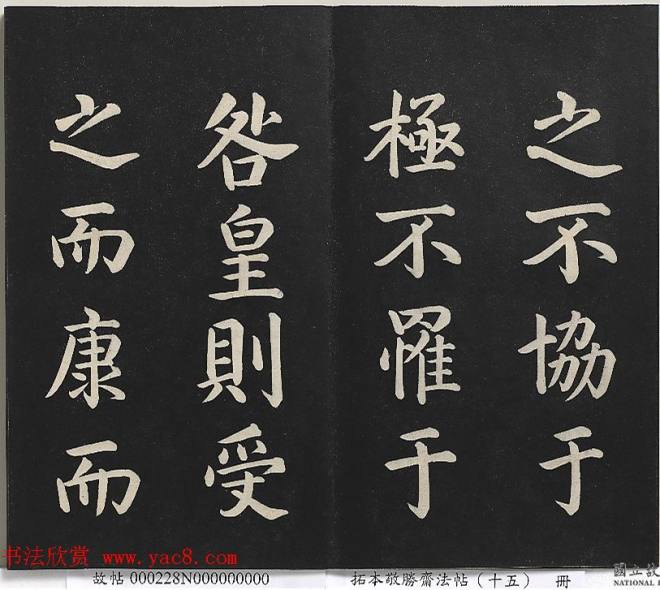 之不協于
極不罹于
咎皇則受
之而康而
书法欣赏 www.yac8.com
故帖 000228N000000000
拓本敬勝齋法帖（十五） 冊
國立故
NATIONAL